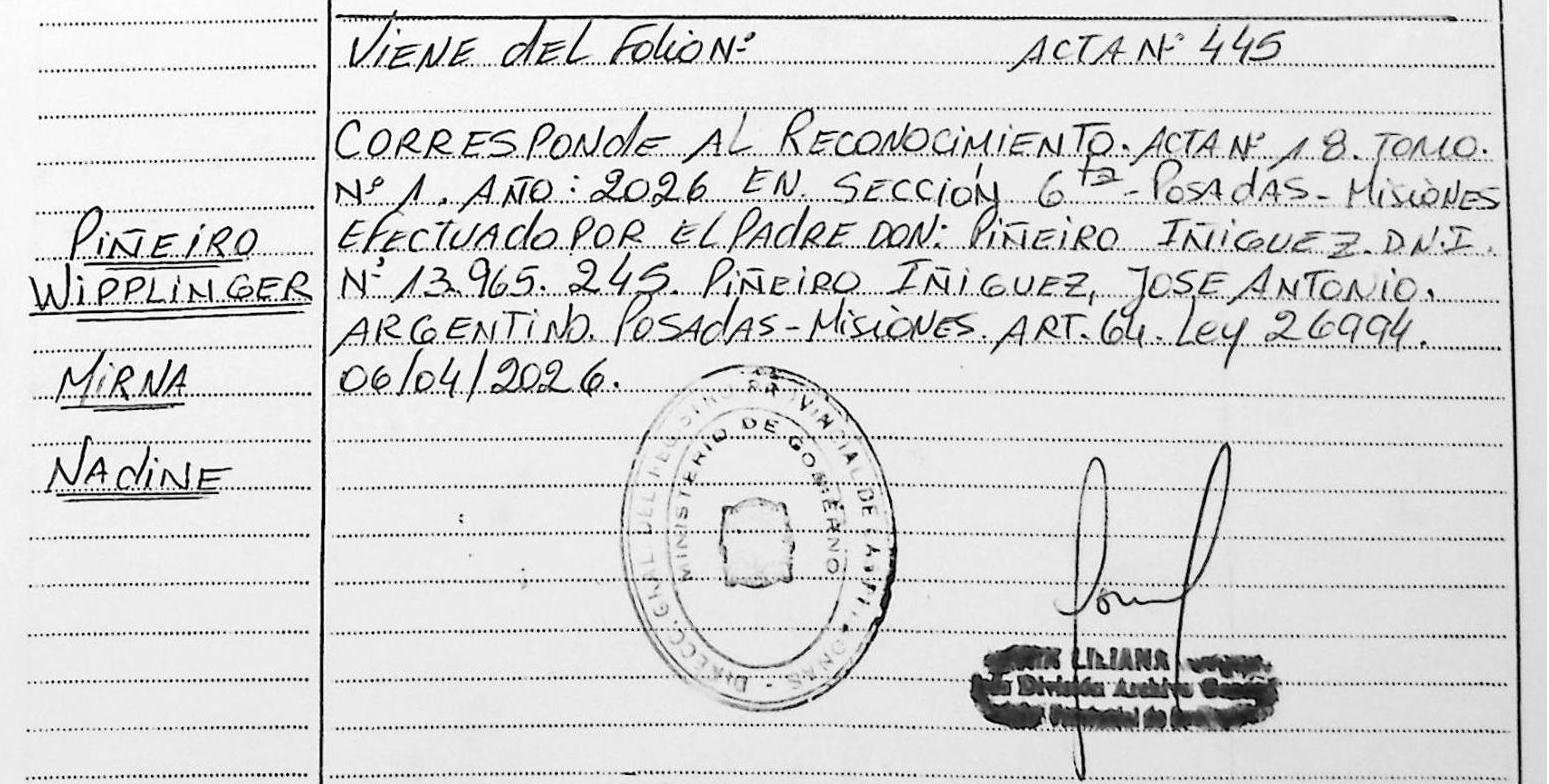 VIENE dEL FoLioNº ACTA Nº 445
CORRESPONdE AL RECONOCIMIENTO. ACTA Nº 18. TOMO.
Nº 1. AÑO: 2026 EN. SECCIÓN 6ta - POSAdAS - MISIONES
EFECTUAdO POR EL PAdRE DON: PIÑEIRO IÑIGUEZ. D.N.I.
Nº 13.965.245. PIÑEIRO IÑIGUEZ, JOSE ANTONIO.
ARGENTINO. POSAdAS - MISIONES. ART. 64. Ley 26994.
06/04/2026.
PIÑEIRO
WIPPLINGER
MIRNA
NAdINE
DIRECC. GRAL. DEL REGISTRO PROVINCIAL DE LAS PERSONAS
MINISTERIO DE GOBIERNO
LILIANA
División Archivo General
Provincial de